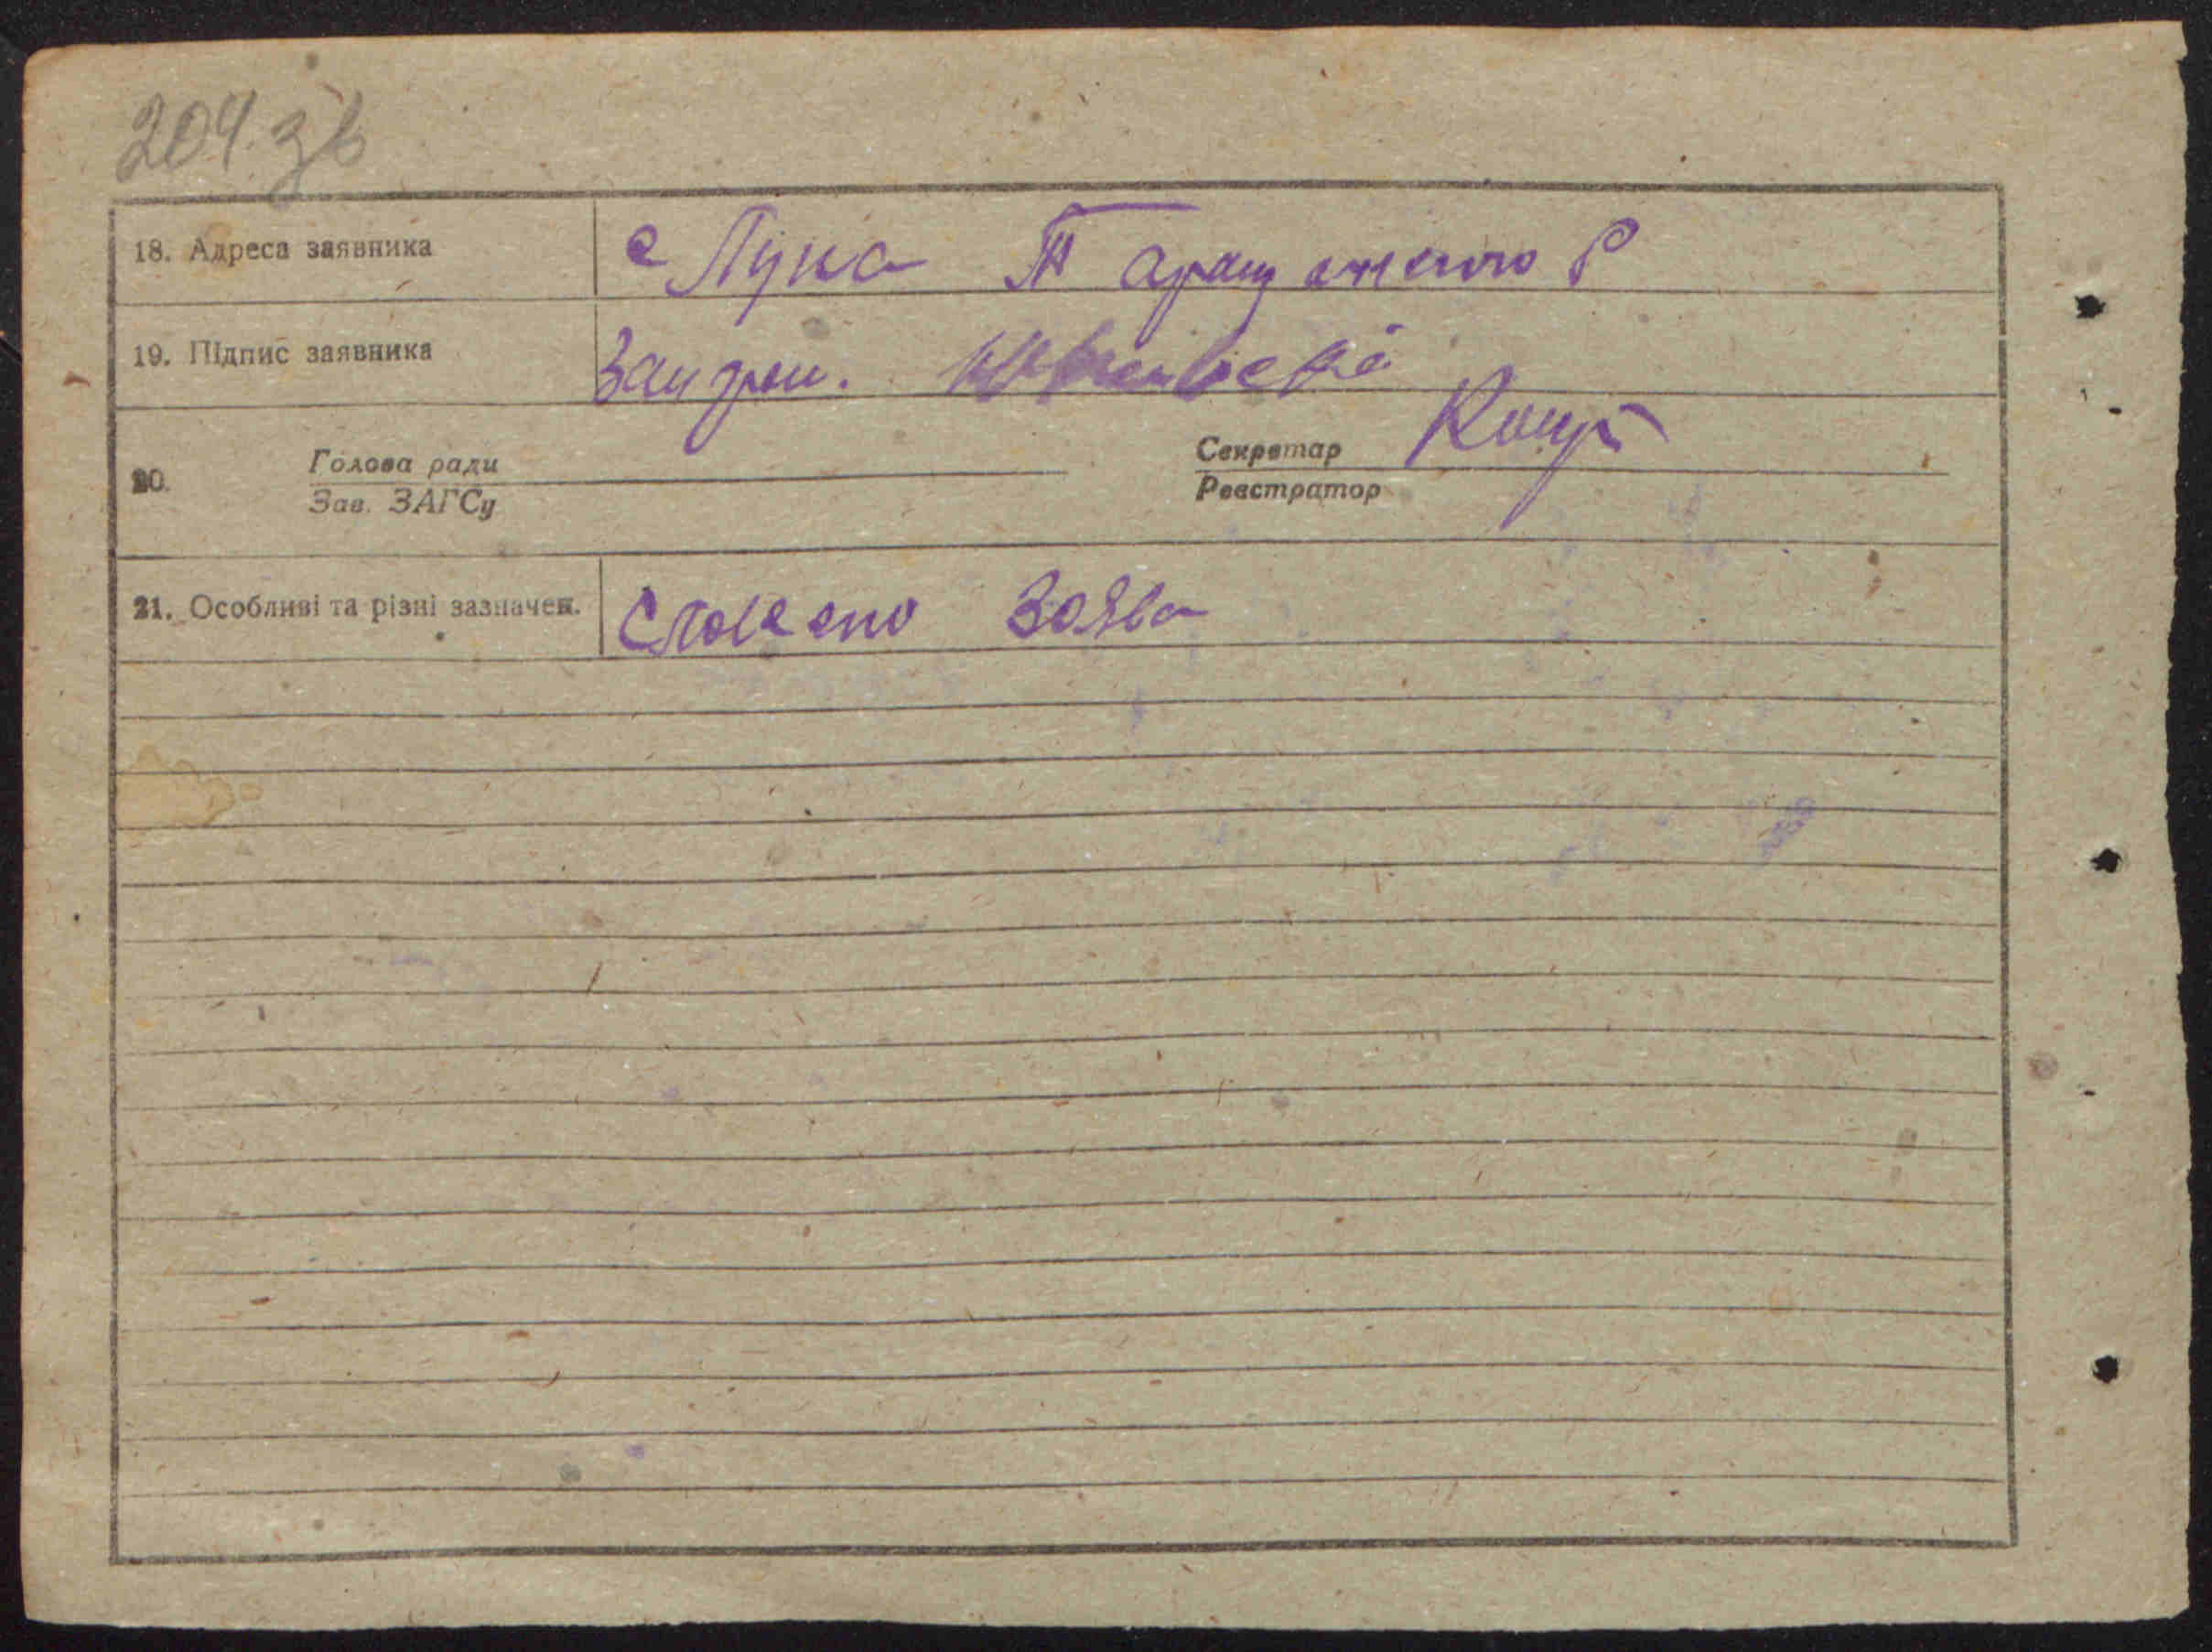 204 зв
18. Адреса заявника с Лука Таращанского Р
19. Підпис заявника
20. Голова ради Секретар
Зав. ЗАГСу Реєстратор
21. Особливі та різні зазначен. Словесно Заява